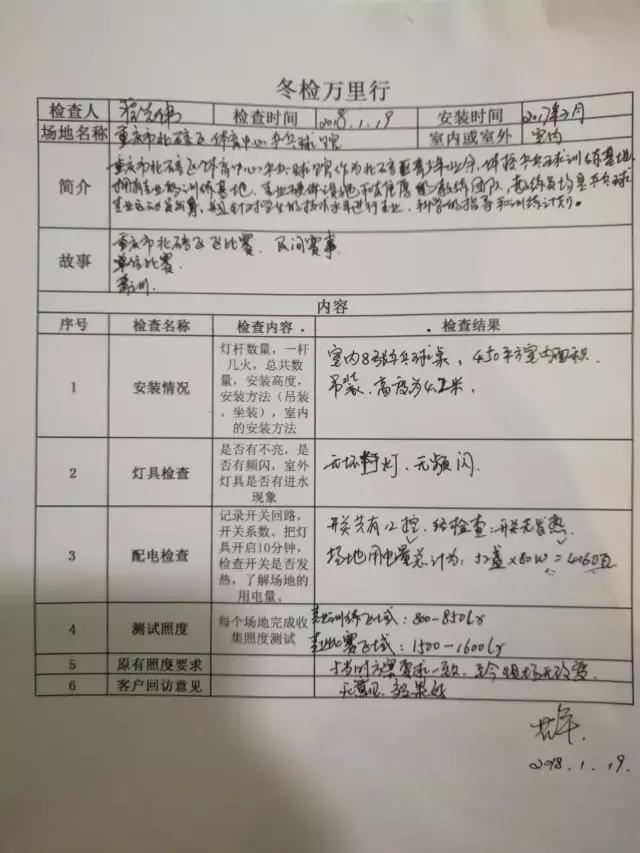 冬检万里行
检查人 检查时间 2018.1.19 安装时间 2017年2月
场地名称 重庆市北碚区体育中心乒乓球馆 室内或室外 室内
简介 重庆市北碚区体育中心乒乓球馆作为北碚区青少年业余体校乒乓球训练基地,
拥有专业的训练基地、专业硬件设施和优秀的教练团队,教练员均是乒乓球
专业运动员出身,并针对学生的技术水平进行专业、科学的指导和训练计划。
故事 重庆市北碚区区比赛、民间赛事
单位比赛.
集训.
内容
序号 检查名称 检查内容 检查结果
1 安装情况 灯杆数量,一杆
几火,总共数
量,安装高度,
安装方法(吊装
、坐装),室内
的安装方法
室内8张乒乓球桌,450平方室内面积.
吊装.高度为4.2米.
2 灯具检查 是否有不亮,是
否有频闪,室外
灯具是否有进水
现象
无坏灯、无频闪.
3 配电检查 记录开关回路,
开关系数。把灯
具开启10分钟,
检查开关是否发
热,了解场地的
用电量。
开关共有12控.经检查:开关无发热.
场地用电量总计为:52盏×80W=4160瓦
4 测试照度 每个场地完成收
集照度测试
专业训练区域:800-850lx
专业比赛区域:1500-1600lx
5 原有照度要求 与当时方案要求一致.至今现场无改变.
6 客户回访意见 无意见.效果好
2018.1.19.